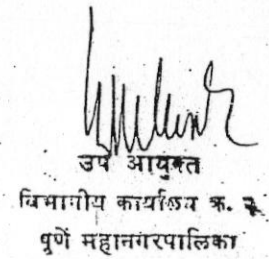 उप आयुक्त
विभागीय कार्यालय क्र.
पुणें महानगरपालिका